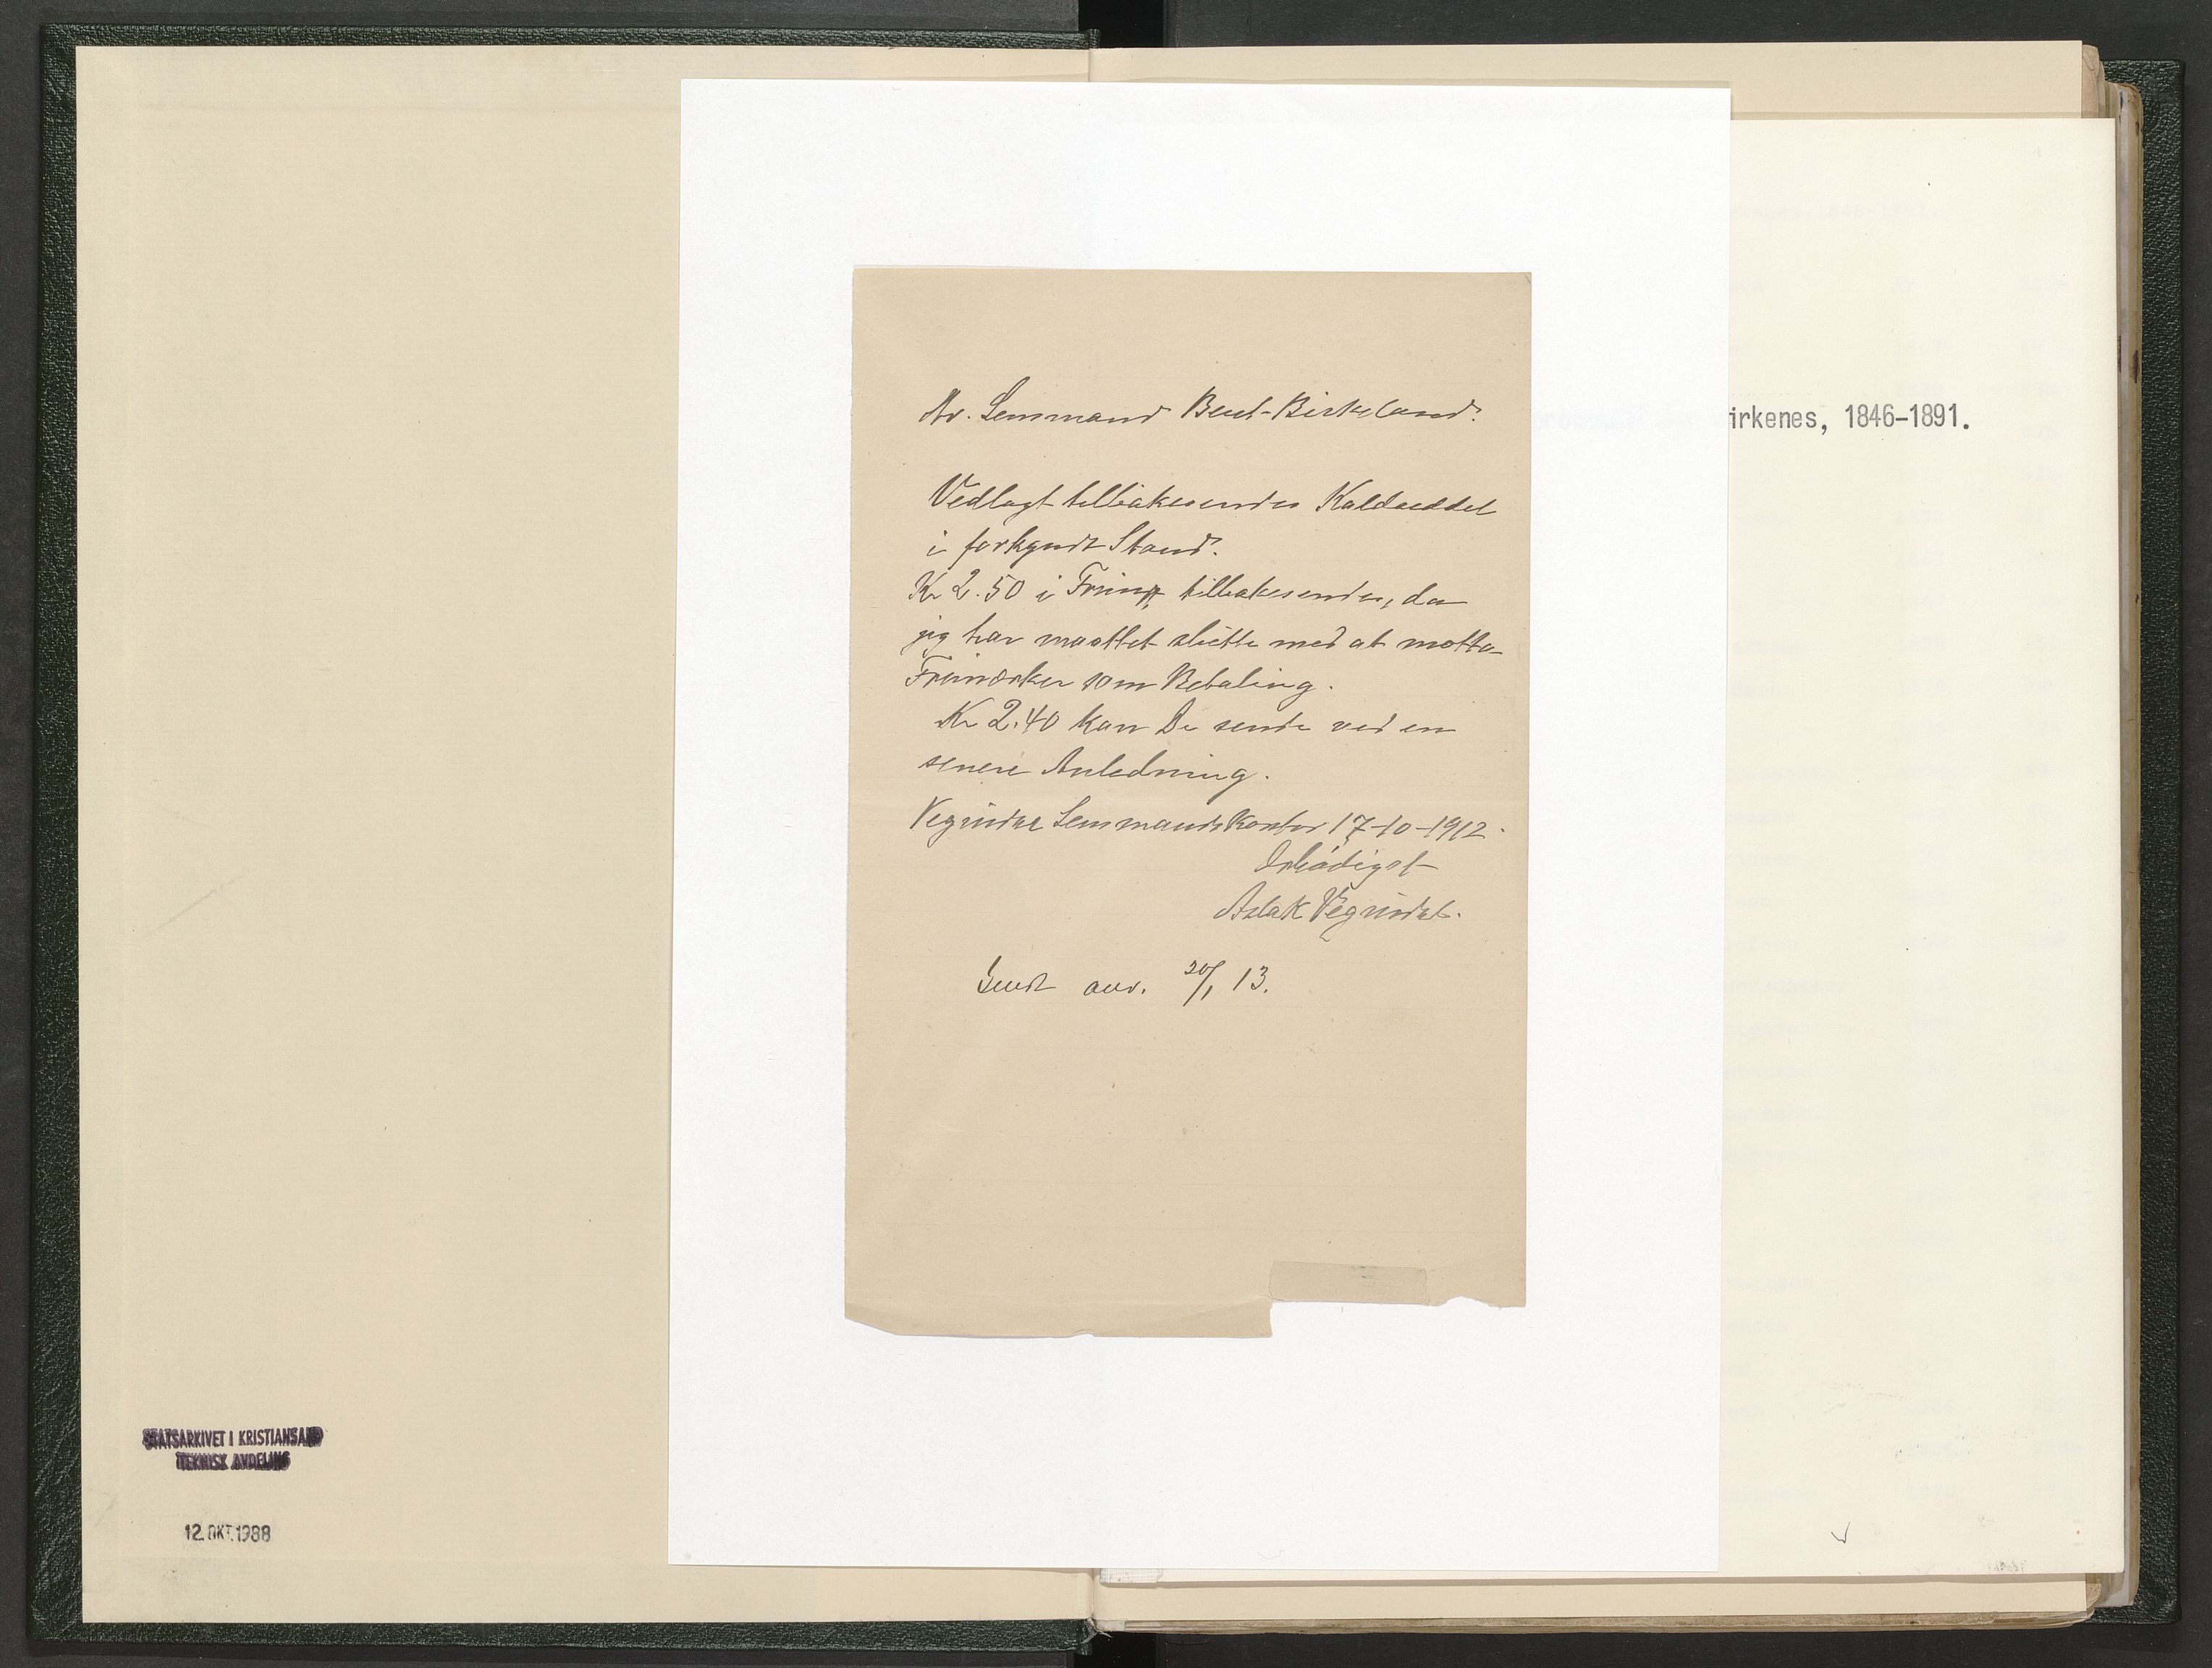 Hr. Lensmand Beut-Birkeland.
Vedlagt tilbakesendes Kaldseddel
i forkyndt Stand.
Kr 2.50 i Frim tilbakesendes, da
jeg har maattet slutte med at motta
Frimærker som Betaling.
Kr 2.40 kan De sende ved en
senere Anledning.
Vegusdal Lensmandskontor 17-10-1912.
Ærbødigst
Aslak Vegusdal.
Sendt anv. 20/1 13.
irkenes, 1846-1891.
STATSARKIVET I KRISTIANSAND
TEKNISK AVDELING
12. OKT. 1988